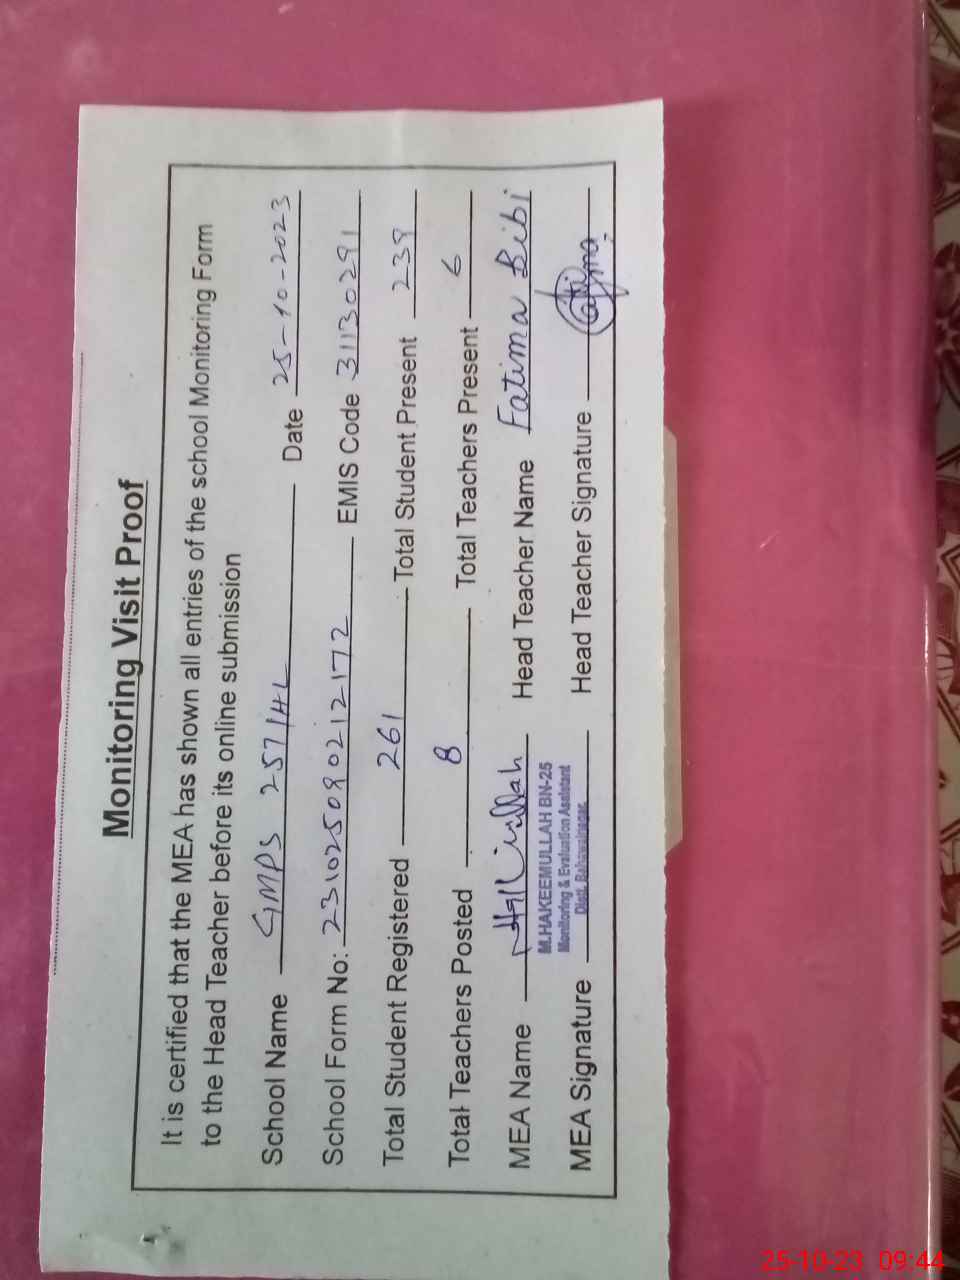 Monitoring Visit Proof
It is certified that the MEA has shown all entries of the school Monitoring Form
to the Head Teacher before its online submission
School Name GMPS 257/HL Date 25-10-2023
School Form No: 231025090212172 EMIS Code 31130291
Total Student Registered 261 Total Student Present 239
Total Teachers Posted 8 Total Teachers Present 6
MEA Name Head Teacher Name Fatima Bibi
M.HAKEEMULLAH BN-25
Monitoring & Evaluation Assistant
Distt. Bahawalnagar.
MEA Signature Head Teacher Signature Fatima
25-10-23 09:44